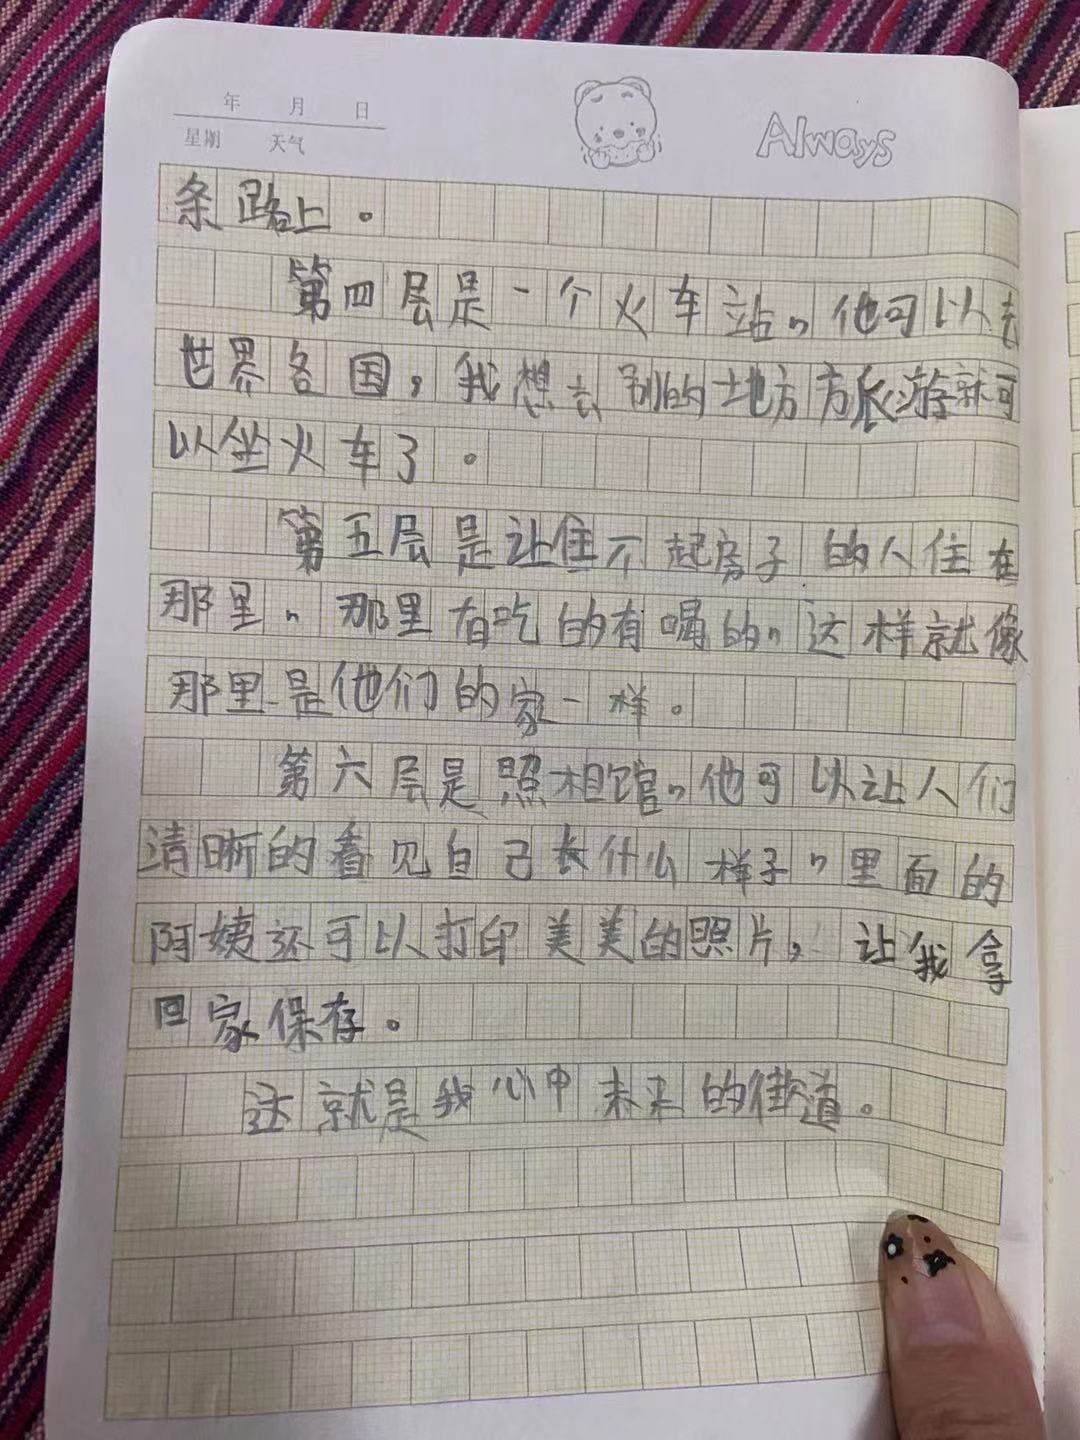 年 月 日
星期 天气
Always
条路上。
第四层是一个火车站,他可以去
世界各国,我想去别的地方方旅游就可
以坐火车了。
第五层是让住不起房子的人住在
那里,那里有吃的有喝的,这样就像
那里是他们的家一样。
第六层是照相馆,他可以让人们
清晰的看见自己长什么样子,里面的
阿姨还可以打印美美的照片,让我拿
回家保存。
这就是我心中未来的街道。